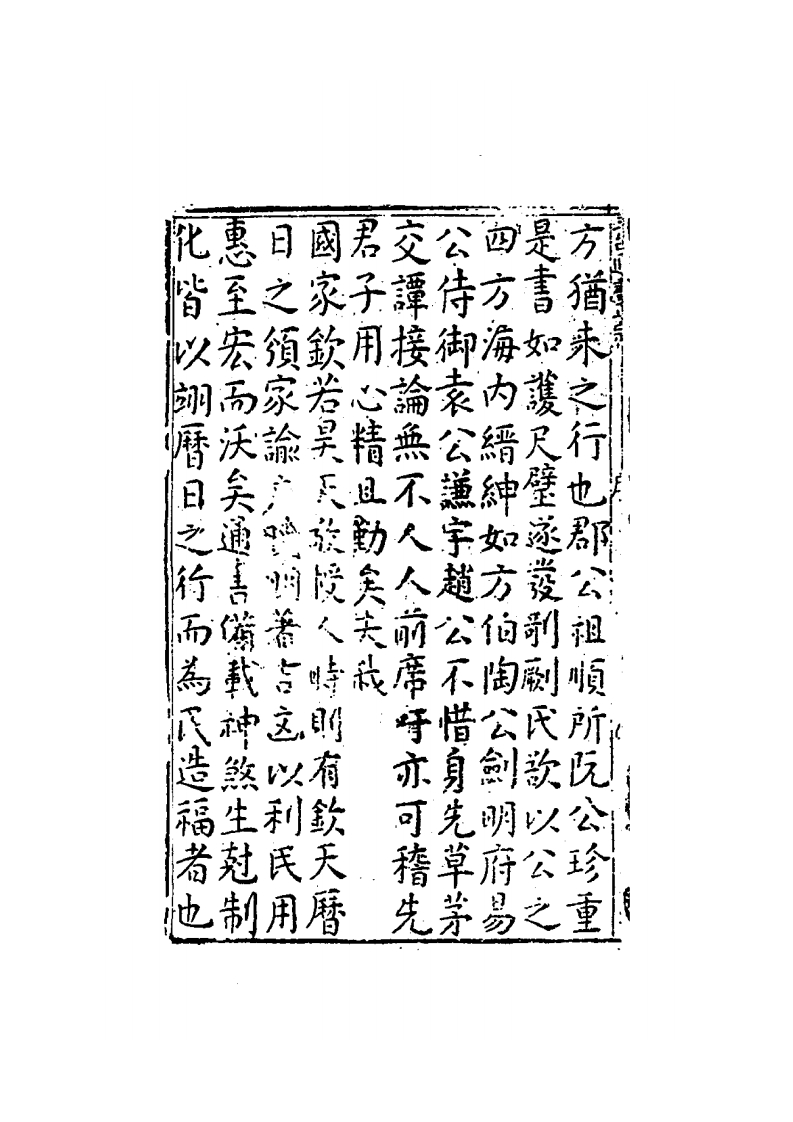 方猶未之行也郡公祖順所阮公珍重
是書如護尺璧遂發剞劂氏歆以公之
四方海內縉紳如方伯陶公劍明府易
公侍御袁公謙宇趙公不惜身先草茅
交譚接論無不人人前席吁亦可稽先
君子用心精且勤矣夫我
國家欽若昊天敬授人時則有欽天曆
日之頒家諭戶曉明著吉凶以利民用
惠至宏而沃矣通書備載神煞生尅制
化皆以翊曆日之行而為民造福者也
序